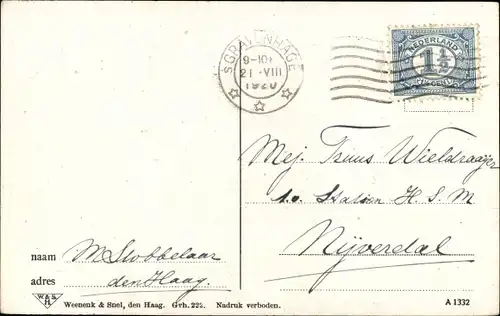 'SGRAVENHAGE
9-10V
21.VIII
1920
NEDERLAND
1½
Mej. Truus Wieldraaijer
p.o. Station H.S.M
Nijverdal
naam M Slobbelaar
adres den Haag.
W&S
H
Weenenk & Snel, den Haag. Gvh. 222. Nadruk verboden.
A 1332